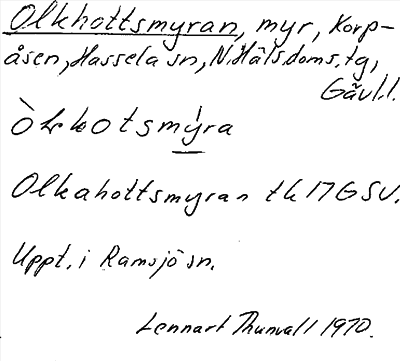 Olkhottsmyran, myr, Korp-
åsen, Hassela sn, N. Häls. doms. tg,
Gävl. l.
Olkahottsmyran tk 17G SV.
Uppt. i Ramsjö sn.
Lennart Thunvall 1970.